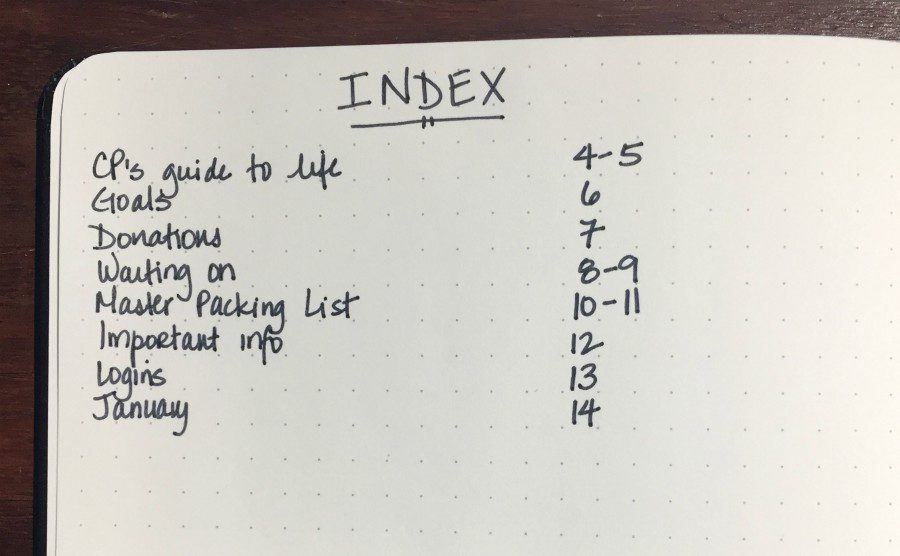 INDEX
CP's guide to life 4-5
Goals 6
Donations 7
Waiting on 8-9
Master Packing List 10-11
Important info 12
Logins 13
January 14